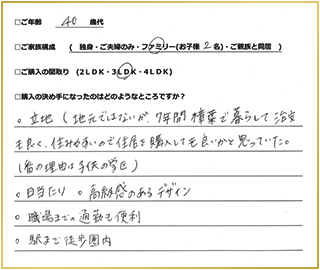 □ご年齢 40 歳代
□ご家族構成 ( 独身・ご夫婦のみ・ファミリー(お子様 2 名)・ご親族と同居 )
□ご購入の間取り (2LDK・3LDK・4LDK)
□購入の決め手になったのはどのようなところですか?
○ 立地 ( 地元ではないが、7年間 樟葉で暮らして 治安
も良く、住みやすいので住居を購入しても良いかと思っていた。
(1番の理由は子供の学区)
○ 日当たり ○ 高級感のあるデザイン
○ 職場までの通勤も便利
○ 駅まで徒歩圏内